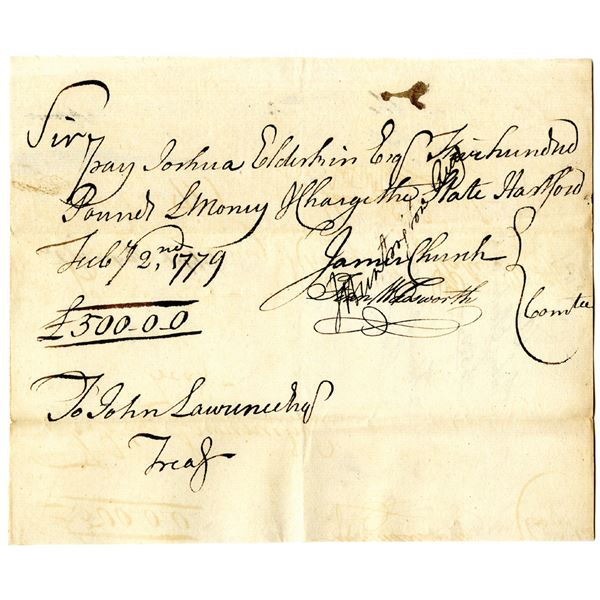 Sir
Pay Joshua Elderkin Esq Five hundred
Pounds LMoney & Charge the State Hartford
Feby 2nd, 1779
James Church
Wadsworth
Comtee
Huntington
£500-0-0
To John Lawrence Esq
Treasr